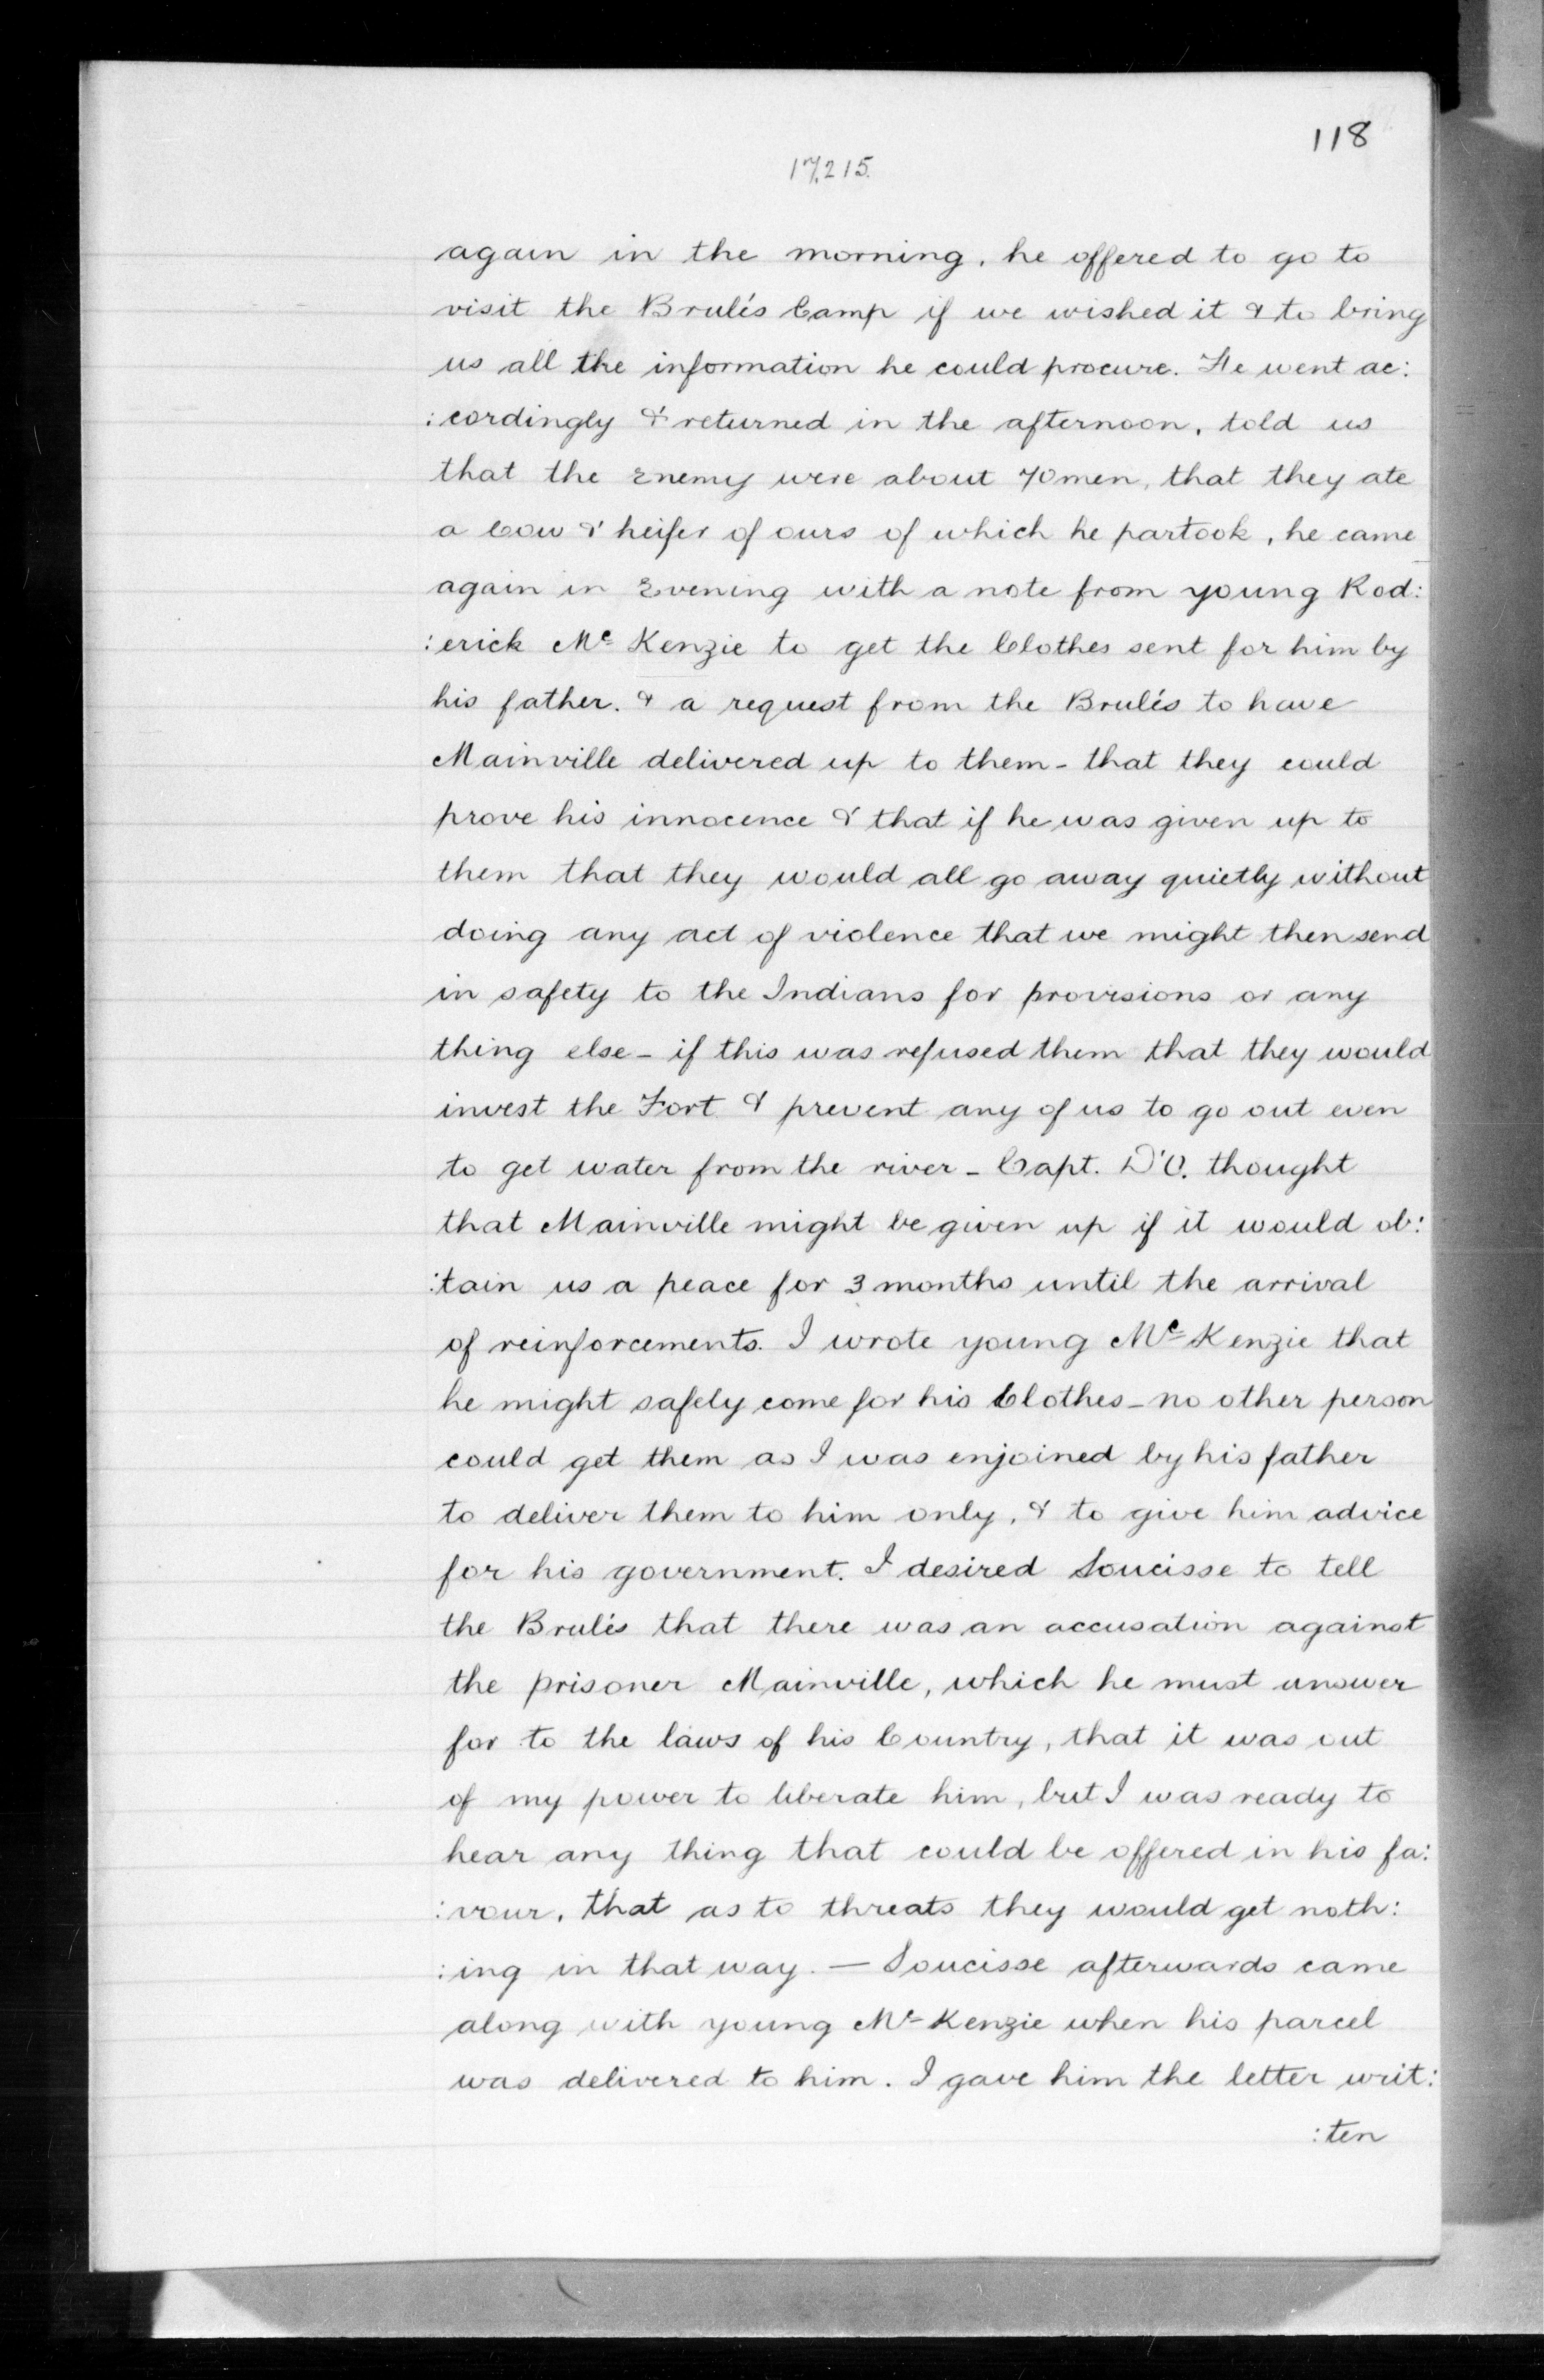 118
17,215.
again in the morning, he offered to go to
visit the Brulés Camp if we wished it & to bring
us all the information he could procure. He went ac:
:cordingly & returned in the afternoon, told us
that the Enemy were about 70 men, that they ate
a Cow & heifer of ours of which he partook, he came
again in Evening with a note from young Rod:
:erick Mc Kenzie to get the Clothes sent for him by
his father. & a request from the Brulés to have
Mainville delivered up to them - that they could
prove his innocence & that if he was given up to
them that they would all go away quietly without
doing any act of violence that we might then send
in safety to the Indians for provisions or any
thing else - if this was refused them that they would
invest the Fort & prevent any of us to go out even
to get water from the river - Capt. D'O. thought
that Mainville might be given up if it would ob:
:tain us a peace for 3 months until the arrival
of reinforcements. I wrote young Mc Kenzie that
he might safely come for his Clothes - no other person
could get them as I was enjoined by his father
to deliver them to him only, & to give him advice
for his government. I desired Soucisse to tell
the Brulés that there was an accusation against
the prisoner Mainville, which he must answer
for to the laws of his Country, that it was out
of my power to liberate him, but I was ready to
hear any thing that could be offered in his fa:
:vour, that as to threats they would get noth:
:ing in that way. — Soucisse afterwards came
along with young Mc Kenzie when his parcel
was delivered to him. I gave him the letter writ:
:ten